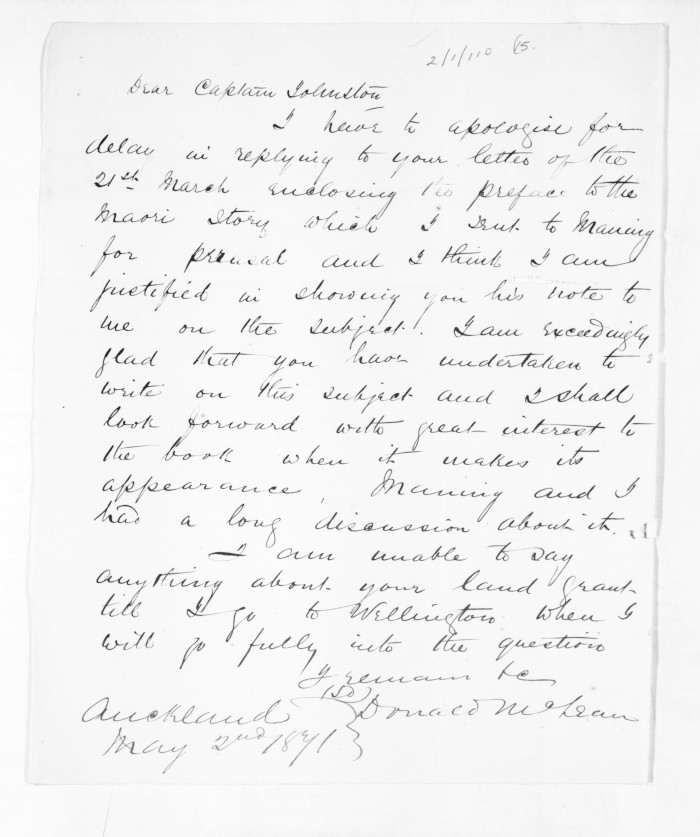 2/1/110 15.
Dear Captain Johnston
I have to apologise for
delay in replying to your letter of the
21st March enclosing the preface to the
Maori Story which I sent to Maning
for perusal and I think I am
justified in showing you his note to
me on the subject. I am exceedingly
glad that you have undertaken to
write on this subject and I shall
look forward with great interest to
the book when it makes its
appearance, Maning and I
had a long discussion about it.
I am unable to say
anything about your land grant
till I go to Wellington when I
will go fully into the question
I remain &c
(Sd) Donald McLean
Auckland
May 2nd 1871